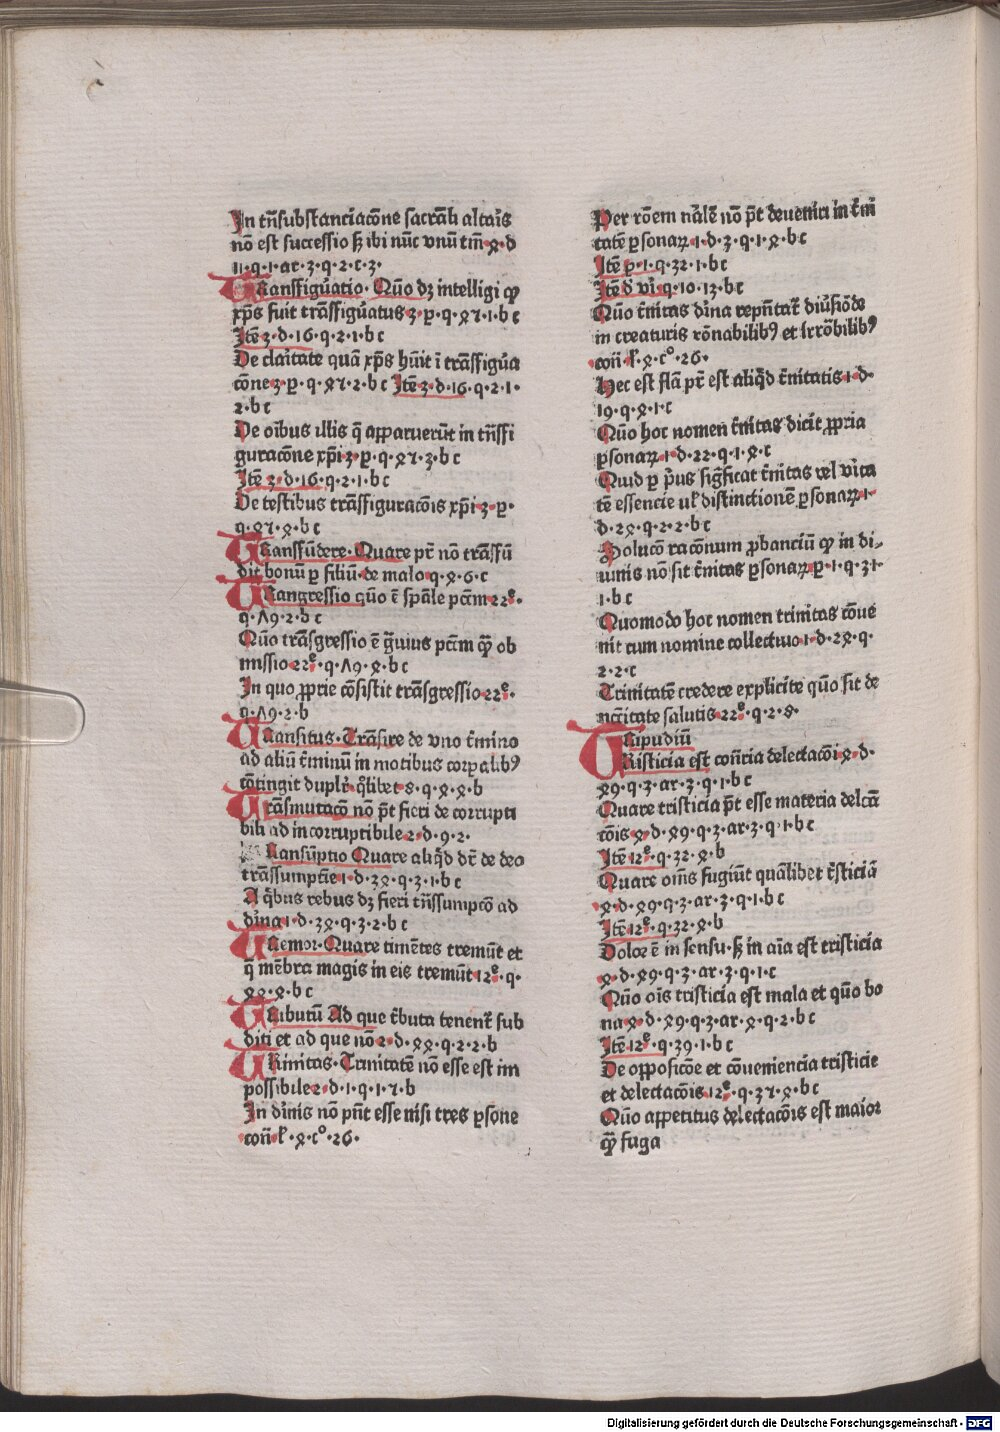 In tn̄substanciacōne sacrāti altar̄s
nō est successio sꝫ ibi nūc vnū tm̄ ꝝ·d
11·q·1·ar·3·q·2·c·3·
TRansfigūatio· Quō dꝫ intelligi qꝫ
xp̄s fuit trāsfigūatus 3·p·q·ꝝ7·1·b c
Itē 3·d·16·q·2·1·b c
De clar̄tate quā xp̄s hūit ī trāsfigūa
cōne 3·p·q·ꝝ7·2·b c Itē 3·d·16·q·2·1·
2·b c
De oībus illis q̄ apparuerūt in tn̄sfi
guracōne xp̄i 3·p·q·ꝝ7·3·b c
Itē 3·d·16·q·2·1·b c
De testibus trāsfiguracōis xp̄i 3·p·
q·ꝝ7·ꝝ·b c
TRansfūdere· Quare pr̄ nō trāsfū
dit bonū ꝑ filiū de malo q·ꝝ·6·c
TRangressio quō ē sp̄ale pctm̄ 22ᵉ·
q·Λ9·2·b c
Quō trāsgressio ē ḡuius pctm̄ qꝫ ob
missio 22ᵉ·q·Λ9·ꝝ·b c
In quo ꝓprie cōsistit trāsgressio 22ᵉ·
q·Λ9·2·b
TRansitus· Trāsire de vno t̄mino
ad aliū t̄minū in motibus corꝑalibꝰ
cōtingit duplr̄ q̄libet 8·q·ꝝ·ꝝ·b
Trāsmutacō nō p̄t fieri de corrupti
bili ad incorruptibile 2·d·9·2·
Ransūptio Quare aliq̄d dr̄ de deo
trāssumptie 1·d·3ꝝ·q·3·1·b c
A q̄bus rebus dꝫ fieri tn̄ssumpcō ad
dīna 1·d·3ꝝ·q·3·2·b c
TRemor· Quare timētes tremūt et
q̄ mēbra magis in eis tremūt 12ᵉ·q·
ꝝꝝ·ꝝ·b c
TRibutū Ad que t̄buta tenent̄ sub
diti et ad que nō 2·d·ꝝꝝ·q·2·2·b
TRinitas· Trinitatē nō esse est im
possibile 2·d·1·q·1·7·b
In dīnis nō pn̄t esse nisi tres ꝑsone
con̄ k̄·ꝝ·c°·26·
Per rōem nālē nō p̄t deueniri in t̄ni
tatē ꝑsonaꝝ 1·d·3·q·1·ꝝ·b c
Itē p·1·q·32·1·b c
Itē d̄ vī·q·10·13·b c
Quō t̄nitas dīna repn̄tat̄ diūsiōde
in creaturis rōnabilibꝰ et irrōbilibꝰ
con̄ k̄·ꝝ·c°·26·
Hec est flā pr̄ est aliq̄d t̄nitatis 1·d·
19·q·ꝝ·1·c
Quō hoc nomen t̄nitas dicit̄ ꝓpria
ꝑsonaꝝ 1·d·22·q·1·ꝝ·c
Quid ꝑ p̄us sig̅ficat t̄nitas vel vīta
tē essencie ul̄ distinctionē ꝑsonaꝝ 1·
d·2ꝝ·q·2·2·b c
Solucō racōnum ꝓbanciū qꝫ in di-
uinis nō sit t̄nitas ꝑsonaꝝ p·1·q·31·
1·b c
Quomodo hoc nomen trinitas cōue
nit cum nomine collectiuo 1·d·2ꝝ·q·
2·2·c
Trinitatē credere explicite quō sit de
nc̄itate salutis 22ᵉ·q·2·8·
TRipudiū
Risticia est con̄ria delectacōi ꝝ·d·
ꝝ9·q·3·ar·3·q·1·b c
Quare tristicia p̄t esse materia delcā
cōis ꝝ·d·ꝝ9·q·3·ar·3·q·1·b c
Itē 12ᵉ·q·32·ꝝ·b
Quare oīns fugiūt quālibet t̄sticiā
ꝝ·d·ꝝ9·q·3·ar·3·q·1·b c
Itē 12ᵉ·q·32·ꝝ·b
Dolor ē in sensu· sꝫ in aīa est tristicia
ꝝ·d·ꝝ9·q·3·ar·3·q·1·c
Quō oīs tristicia est mala et quō bo
na ꝝ·d·ꝝ9·q·3·ar·ꝝ·q·2·b c
Itē 12ᵉ·q·39·1·b c
De opposicōe et cōueniencia tristicie
et delectacōis 12ᵉ·q·37·ꝝ·b c
Quō appetitus delectacōis est maior
qꝫ fuga
Digitalisierung gefördert durch die Deutsche Forschungsgemeinschaft - DFG